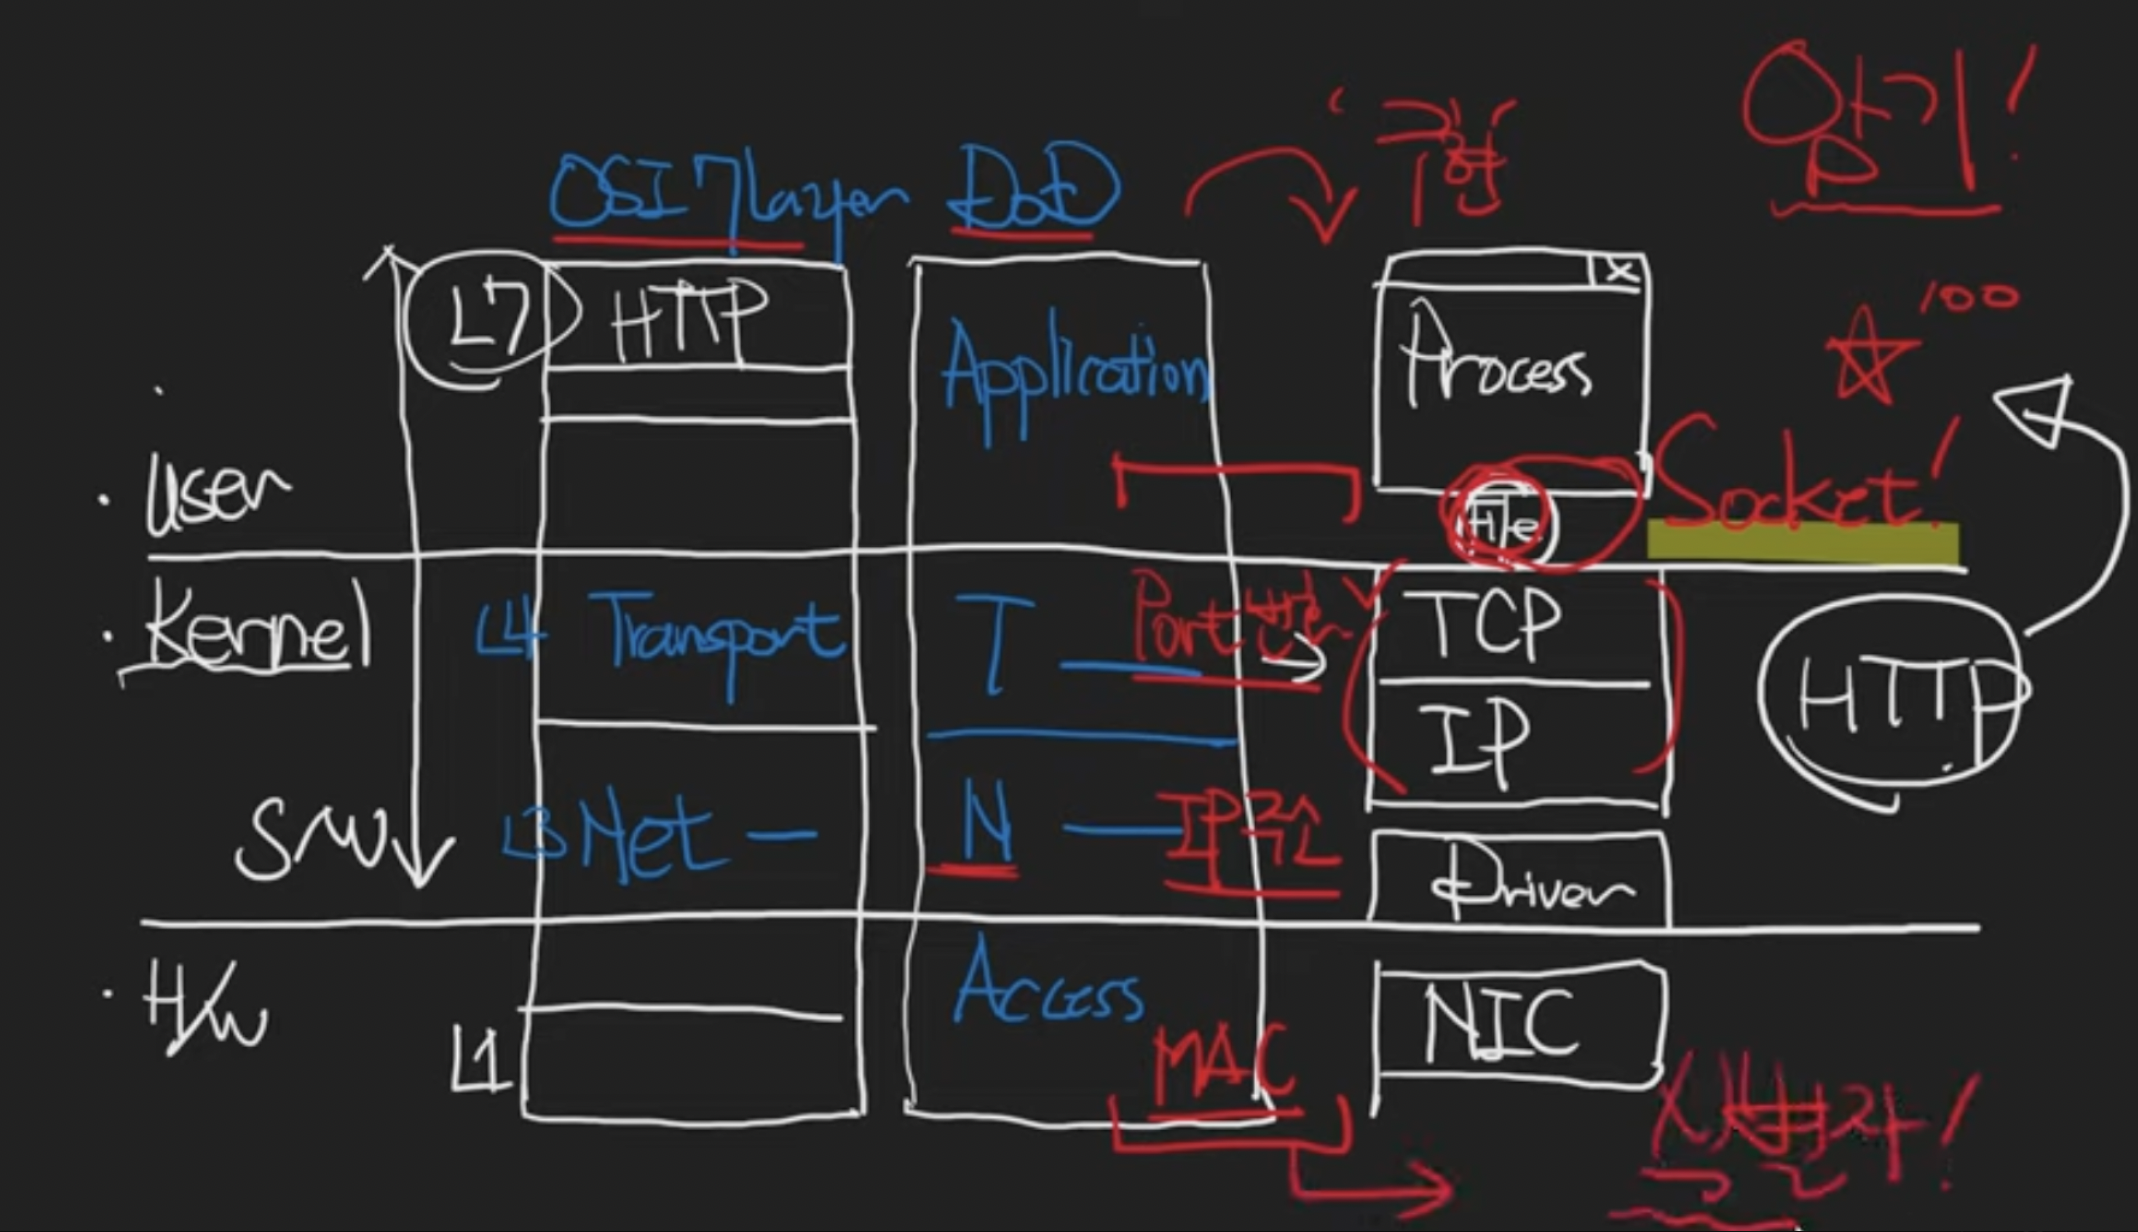 암기!
구현
OSI 7 Layer DoD
L7 HTTP
100
Application
Process
Socket!
File
· User
· Kernel
L4 Transport T
Port 번호
TCP
IP
HTTP
S/W
L3 Net N
IP 주소
Driver
· H/W
Access
NIC
L1
MAC
식별자!